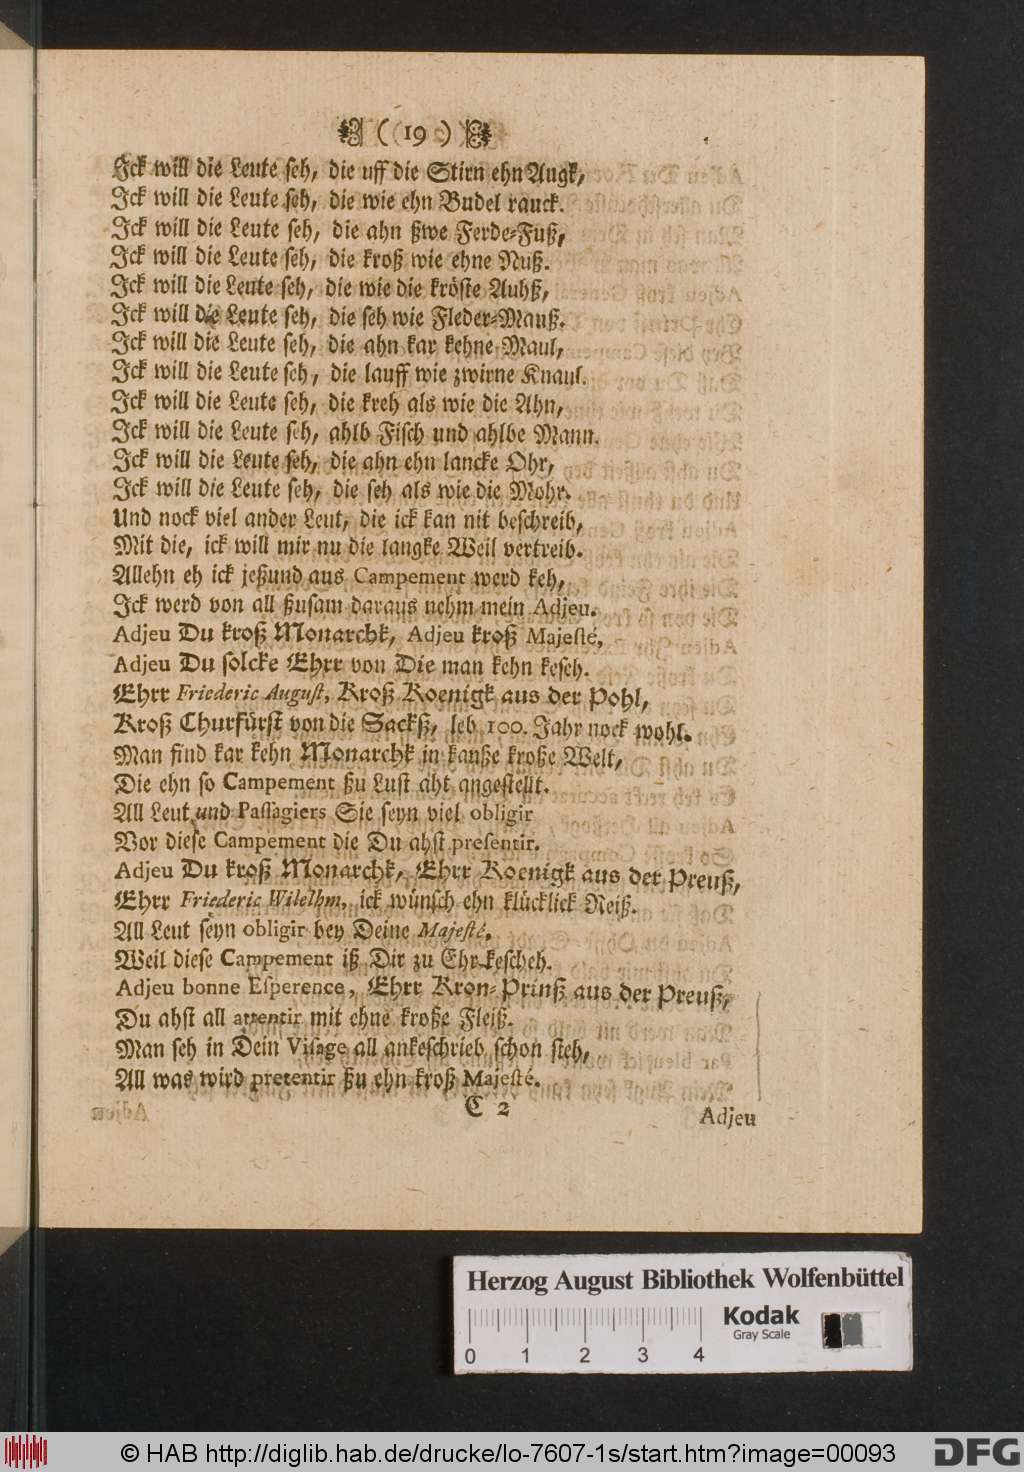 ( 19 )
Ick will die Leute seh, die uff die Stirn ehn Augk,
Ick will die Leute seh, die wie ehn Budel rauck.
Ick will die Leute seh, die ahn ßwe Ferde-Fuß,
Ick will die Leute seh, die kroß wie ehne Nuß.
Ick will die Leute seh, die wie die kröste Auhß,
Ick will die Leute seh, die seh wie Fleder-Mauß.
Ick will die Leute seh, die ahn kar kehne Maul,
Ick will die Leute seh, die lauff wie zwirne Knaul.
Ick will die Leute seh, die kreh als wie die Ahn,
Ick will die Leute seh, ahlb Fisch und ahlbe Mann.
Ick will die Leute seh, die ahn ehn lancke Ohr,
Ick will die Leute seh, die seh als wie die Mohr.
Und nock viel ander Leut, die ick kan nit beschreib,
Mit die, ick will mir nu die langke Weil vertreib.
Allehn eh ick jeßund aus Campement werd keh,
Ick werd von all ßusam daraus nehm mein Adjeu.
Adjeu Du kroß Monarchk, Adjeu kroß Majesté,
Adjeu Du solcke Ehrr von Die man kehn kesch.
Ehrr Friederic August, Kroß Koenigk aus der Pohl,
Kroß Churfürst von die Sackß, leb 100. Jahr nock wohl.
Man find kar kehn Monarchk in kanße kroße Welt,
Die ehn so Campement ßu Lust aht angestellt.
All Leut und Passagiers Sie seyn viel obligir
Vor diese Campement die Du ahst presentir.
Adjeu Du kroß Monarchk, Ehrr Koenigk aus der Preuß,
Ehrr Friederic Wilelhm, ick wünsch ehn klücklick Reiß.
All Leut seyn obligir bey Deine Majesté,
Weil diese Campement iß Dir zu Ehr kescheh.
Adjeu bonne Esperence, Ehrr Kron-Prinß aus der Preuß,
Du ahst all attentir mit ehne kroße Fleiß.
Man seh in Dein Visage all ankeschrieb schon steh,
All was wird pretentir ßu ehn kroß Majesté.
C 2
Adjeu
Herzog August Bibliothek Wolfenbüttel
Kodak
Gray Scale
0 1 2 3 4
© HAB http://diglib.hab.de/drucke/lo-7607-1s/start.htm?image=00093
DFG